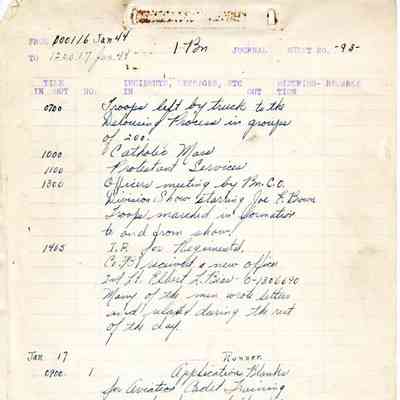 FROM 000116 Jan 44
1-Bn JOURNAL SHEET NO. -93-
TO 120017 Jan 44
TIME INCIDENTS, MESSAGES, ETC REMARKS
IN OUT NO. IN OUT TION
0700 Troops left by truck to the
Delousing Process in groups
of 200.
1000 Catholic Mass
1100 Protestant Services
1300 Officers meeting by Bn. C.O.
Division Show starring Joe E. Brown
Troops marched in formation
to and from show.
1405 I.P. for Regimental.
received a new officer
2nd Lt. Elbert L.
Many of the men wrote letters
and relaxed during the rest
of the day.
Jan 17 Runner
0900 1 Application Blanks
for Aviation Cadet Training